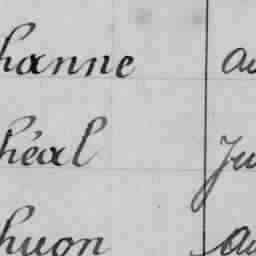 hanne au
héal Ju
huon au